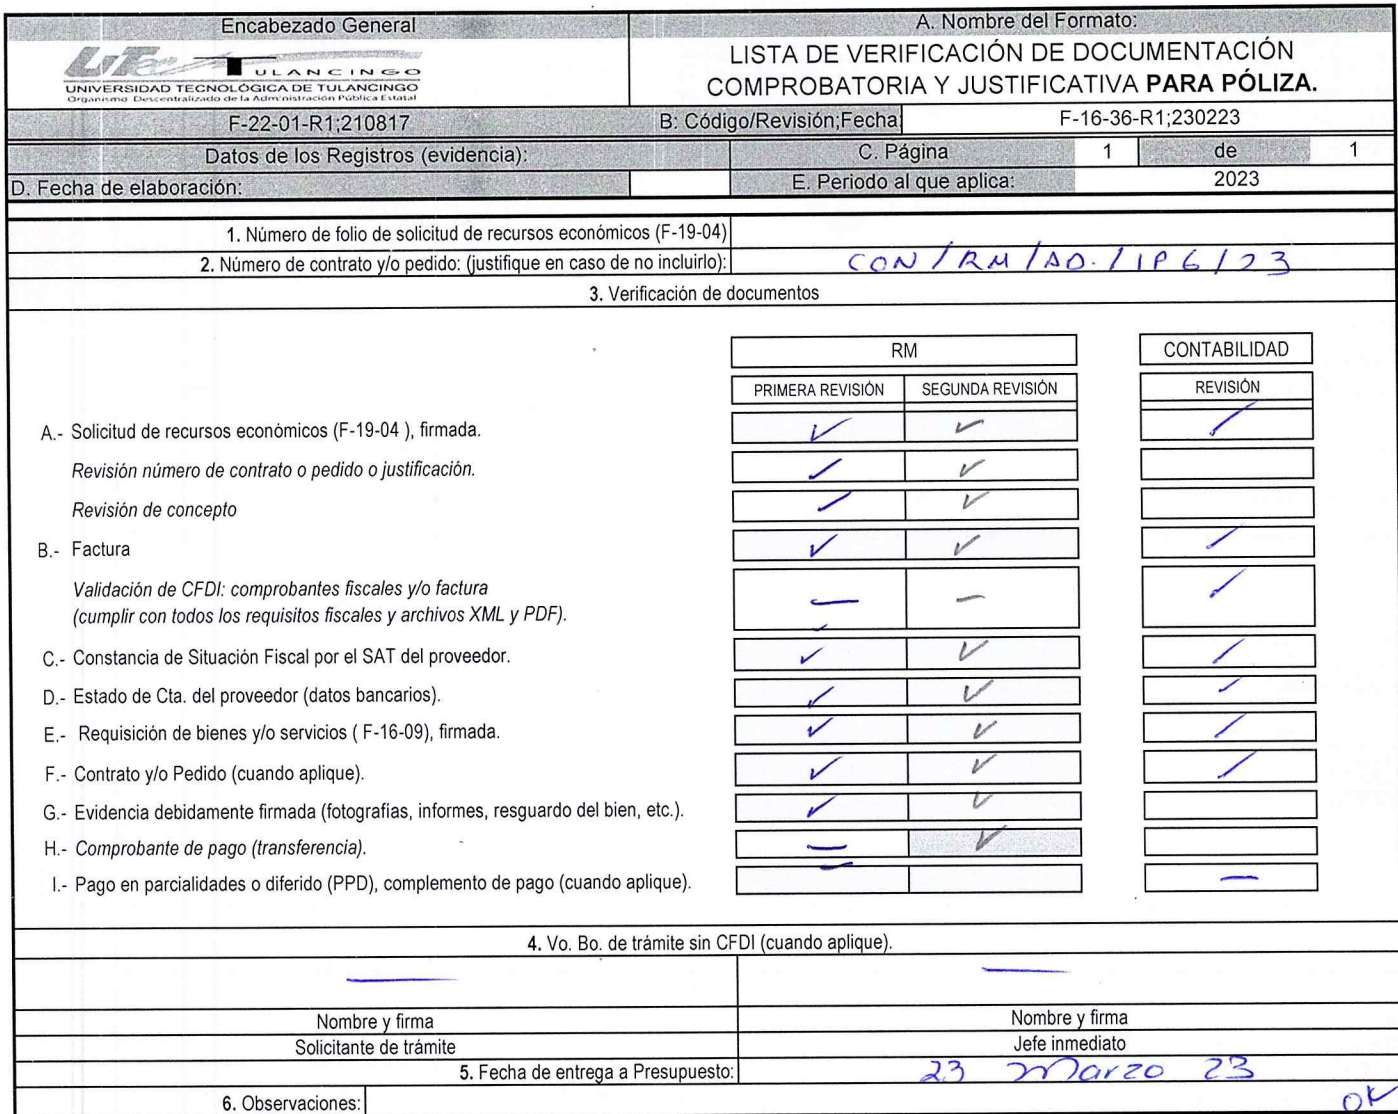 Encabezado General
A. Nombre del Formato:
UTec TULANCINGO
UNIVERSIDAD TECNOLÓGICA DE TULANCINGO
Organismo Descentralizado de la Administración Pública Estatal
LISTA DE VERIFICACIÓN DE DOCUMENTACIÓN
COMPROBATORIA Y JUSTIFICATIVA PARA PÓLIZA.
F-22-01-R1;210817
B: Código/Revisión;Fecha:
F-16-36-R1;230223
Datos de los Registros (evidencia):
C. Página 1 de 1
D. Fecha de elaboración:
E. Periodo al que aplica: 2023
1. Número de folio de solicitud de recursos económicos (F-19-04)
2. Número de contrato y/o pedido: (justifique en caso de no incluirlo): CON/RM/AD./IP6/23
3. Verificación de documentos
RM CONTABILIDAD
PRIMERA REVISIÓN SEGUNDA REVISIÓN REVISIÓN
A.- Solicitud de recursos económicos (F-19-04 ), firmada.
Revisión número de contrato o pedido o justificación.
Revisión de concepto
B.- Factura
Validación de CFDI: comprobantes fiscales y/o factura
(cumplir con todos los requisitos fiscales y archivos XML y PDF).
C.- Constancia de Situación Fiscal por el SAT del proveedor.
D.- Estado de Cta. del proveedor (datos bancarios).
E.- Requisición de bienes y/o servicios ( F-16-09), firmada.
F.- Contrato y/o Pedido (cuando aplique).
G.- Evidencia debidamente firmada (fotografías, informes, resguardo del bien, etc.).
H.- Comprobante de pago (transferencia).
I.- Pago en parcialidades o diferido (PPD), complemento de pago (cuando aplique).
4. Vo. Bo. de trámite sin CFDI (cuando aplique).
Nombre y firma
Nombre y firma
Solicitante de trámite
Jefe inmediato
5. Fecha de entrega a Presupuesto: 23 Marzo 23
6. Observaciones: OK